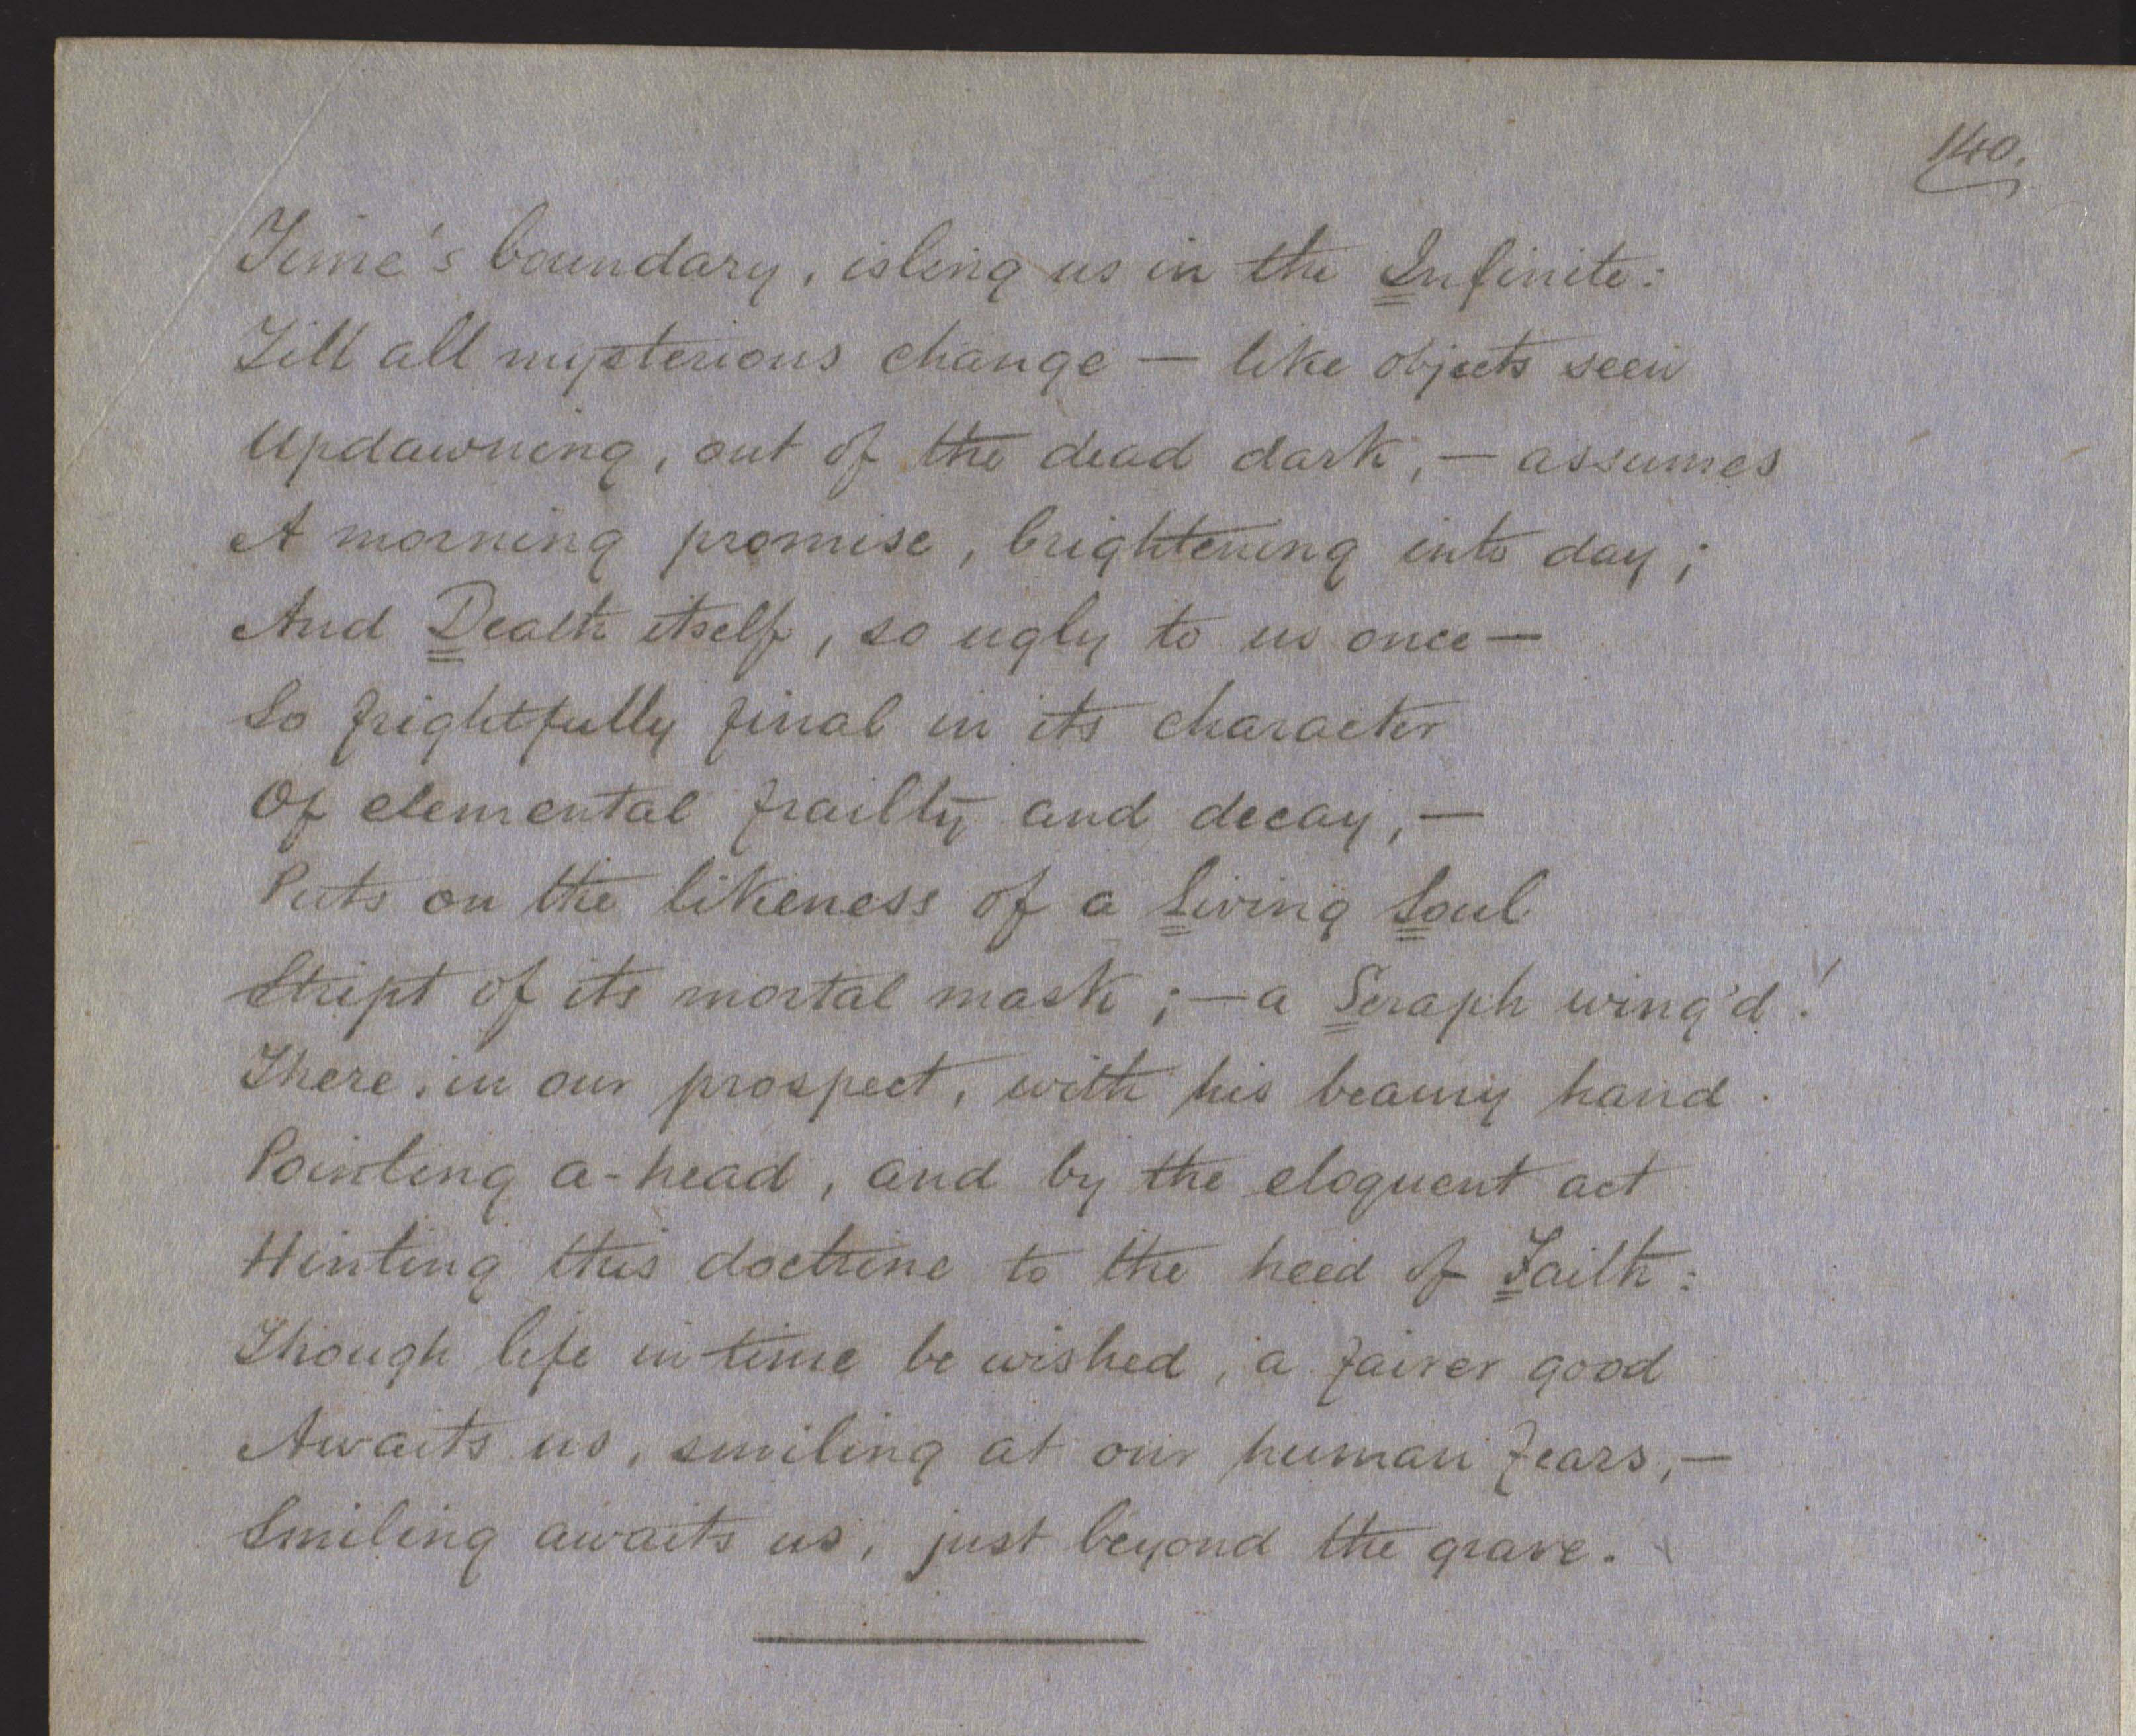 140.
Time's boundary, isling us in the Infinite:
Till all mysterious change — like objects seen
Updawning, out of the dead dark, — assumes
A morning promise, brightening into day;
And Death itself, so ugly to us once —
So frightfully final in its character
Of elemental frailty and decay, —
Puts on the likeness of a Living Soul
Stript of its mortal mask; — a Seraph wing'd!
There, in our prospect, with his beamy hand
Pointing a-head, and by the eloquent act
Hinting this doctrine to the heed of Faith:
Though life in time be wished, a fairer good
Awaits us, smiling at our human fears, —
Smiling awaits us, just beyond the grave.